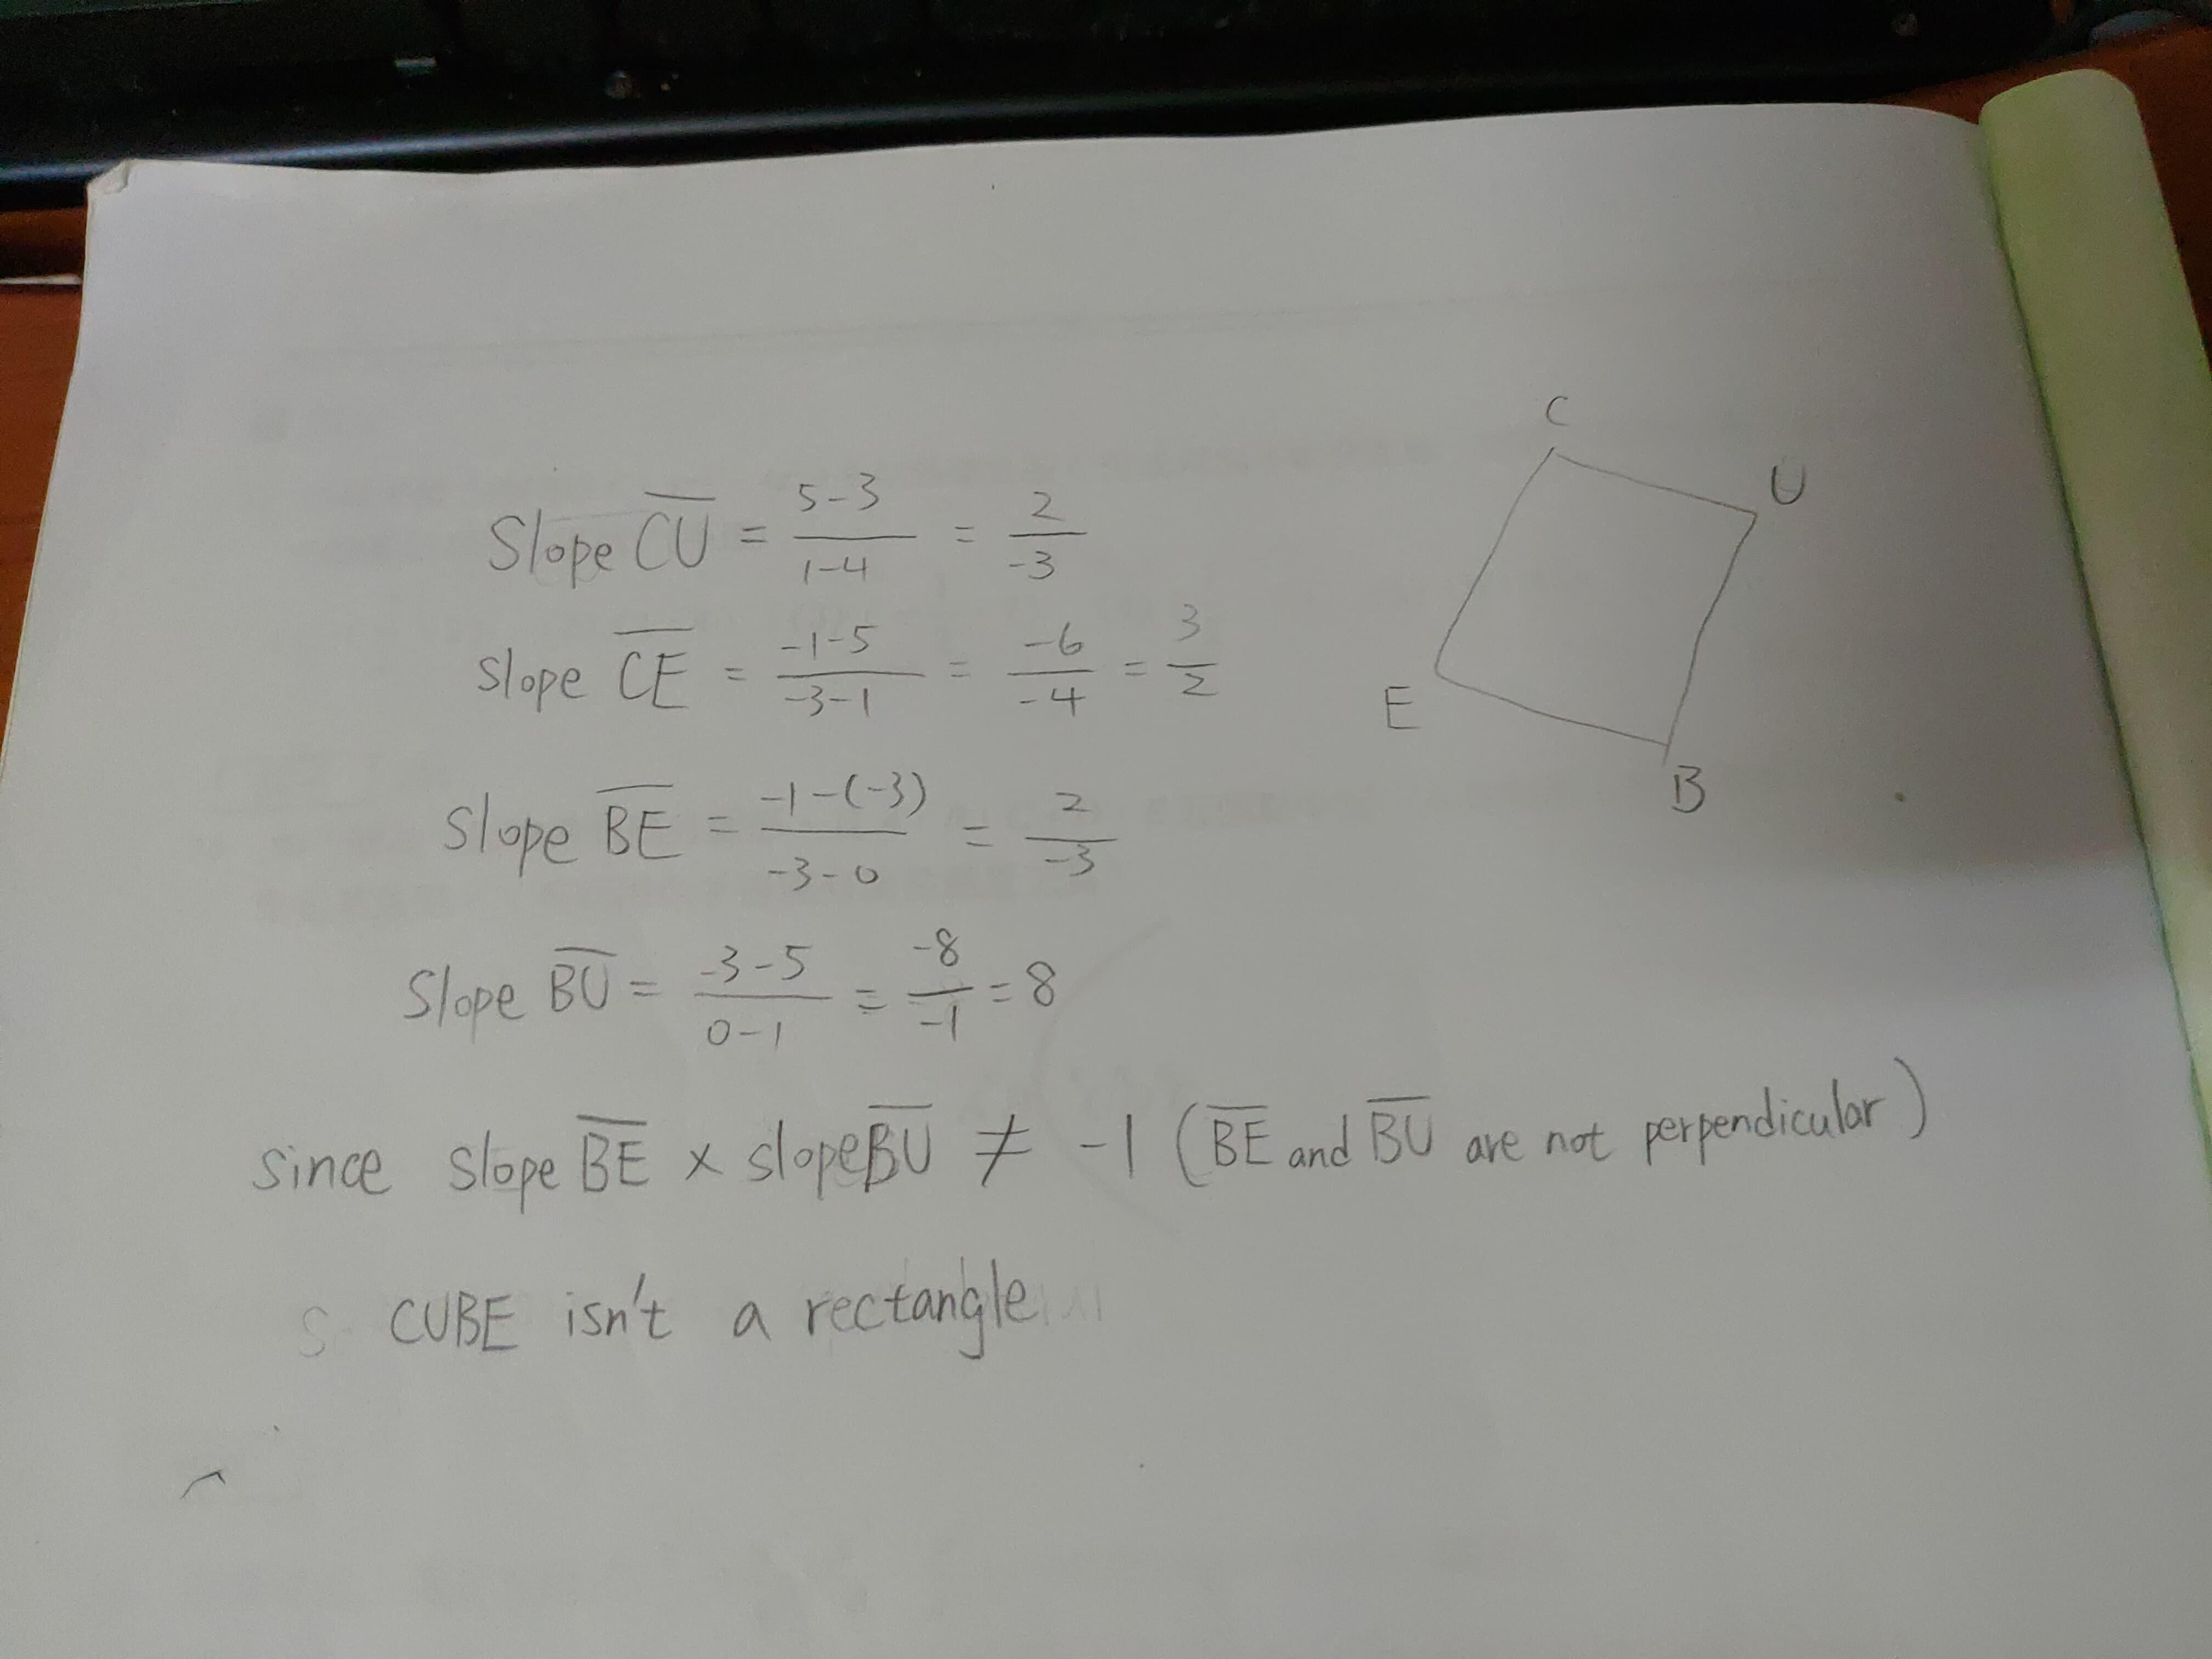 C
U
Slope CU = 5-3 / 1-4 = 2 / -3
slope CE = -1-5 / -3-1 = -6 / -4 = 3 / 2
E
B
Slope BE = -1-(-3) / -3-0 = 2 / -3
Slope BU = -3-5 / 0-1 = -8 / -1 = 8
since slope BE × slope BU ≠ -1 (BE and BU are not perpendicular)
CUBE isn't a rectangle